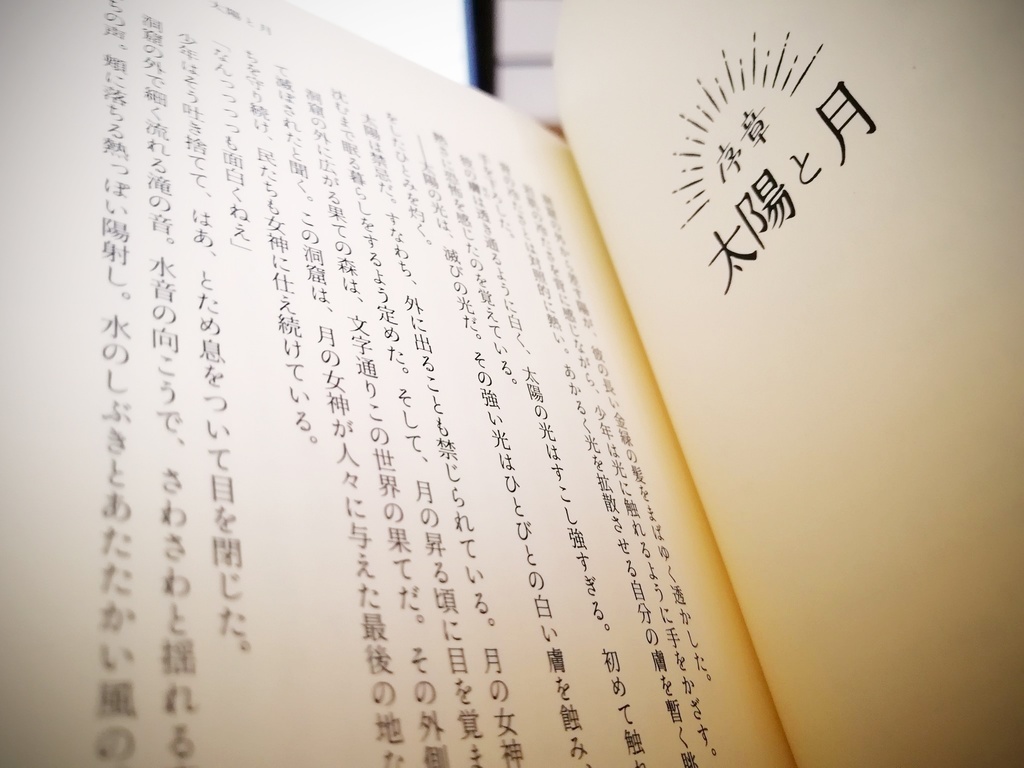 序章
太陽と月
太陽と月
長い金緑の髪をまばゆく透かした。
感じながら、少年は光に触れるように手をかざす。
熱い。あかるく光を拡散させる自分の膚を暫く眺
膚は透き通るように白く、太陽の光はすこし強すぎる。初めて触れ
を覚えている。
――太陽の光は、滅びの光だ。その強い光はひとびとの白い膚を蝕み、
をしたひとみを灼く。
太陽は禁忌だ。すなわち、外に出ることも禁じられている。月の女神
沈むまで眠る暮らしをするよう定めた。そして、月の昇る頃に目を覚ま
洞窟の外に広がる果ての森は、文字通りこの世界の果てだ。その外側
て滅ぼされたと聞く。この洞窟は、月の女神が人々に与えた最後の地だ
ちを守り続け、民たちも女神に仕え続けている。
「なんっっっつも面白くねえ」
少年はそう吐き捨てて、はあ、とため息をついて目を閉じた。
洞窟の外で細く流れる滝の音。水音の向こうで、さわさわと揺れる
ちの声。頬に落ちる熱っぽい陽射し。水のしぶきとあたたかい風の